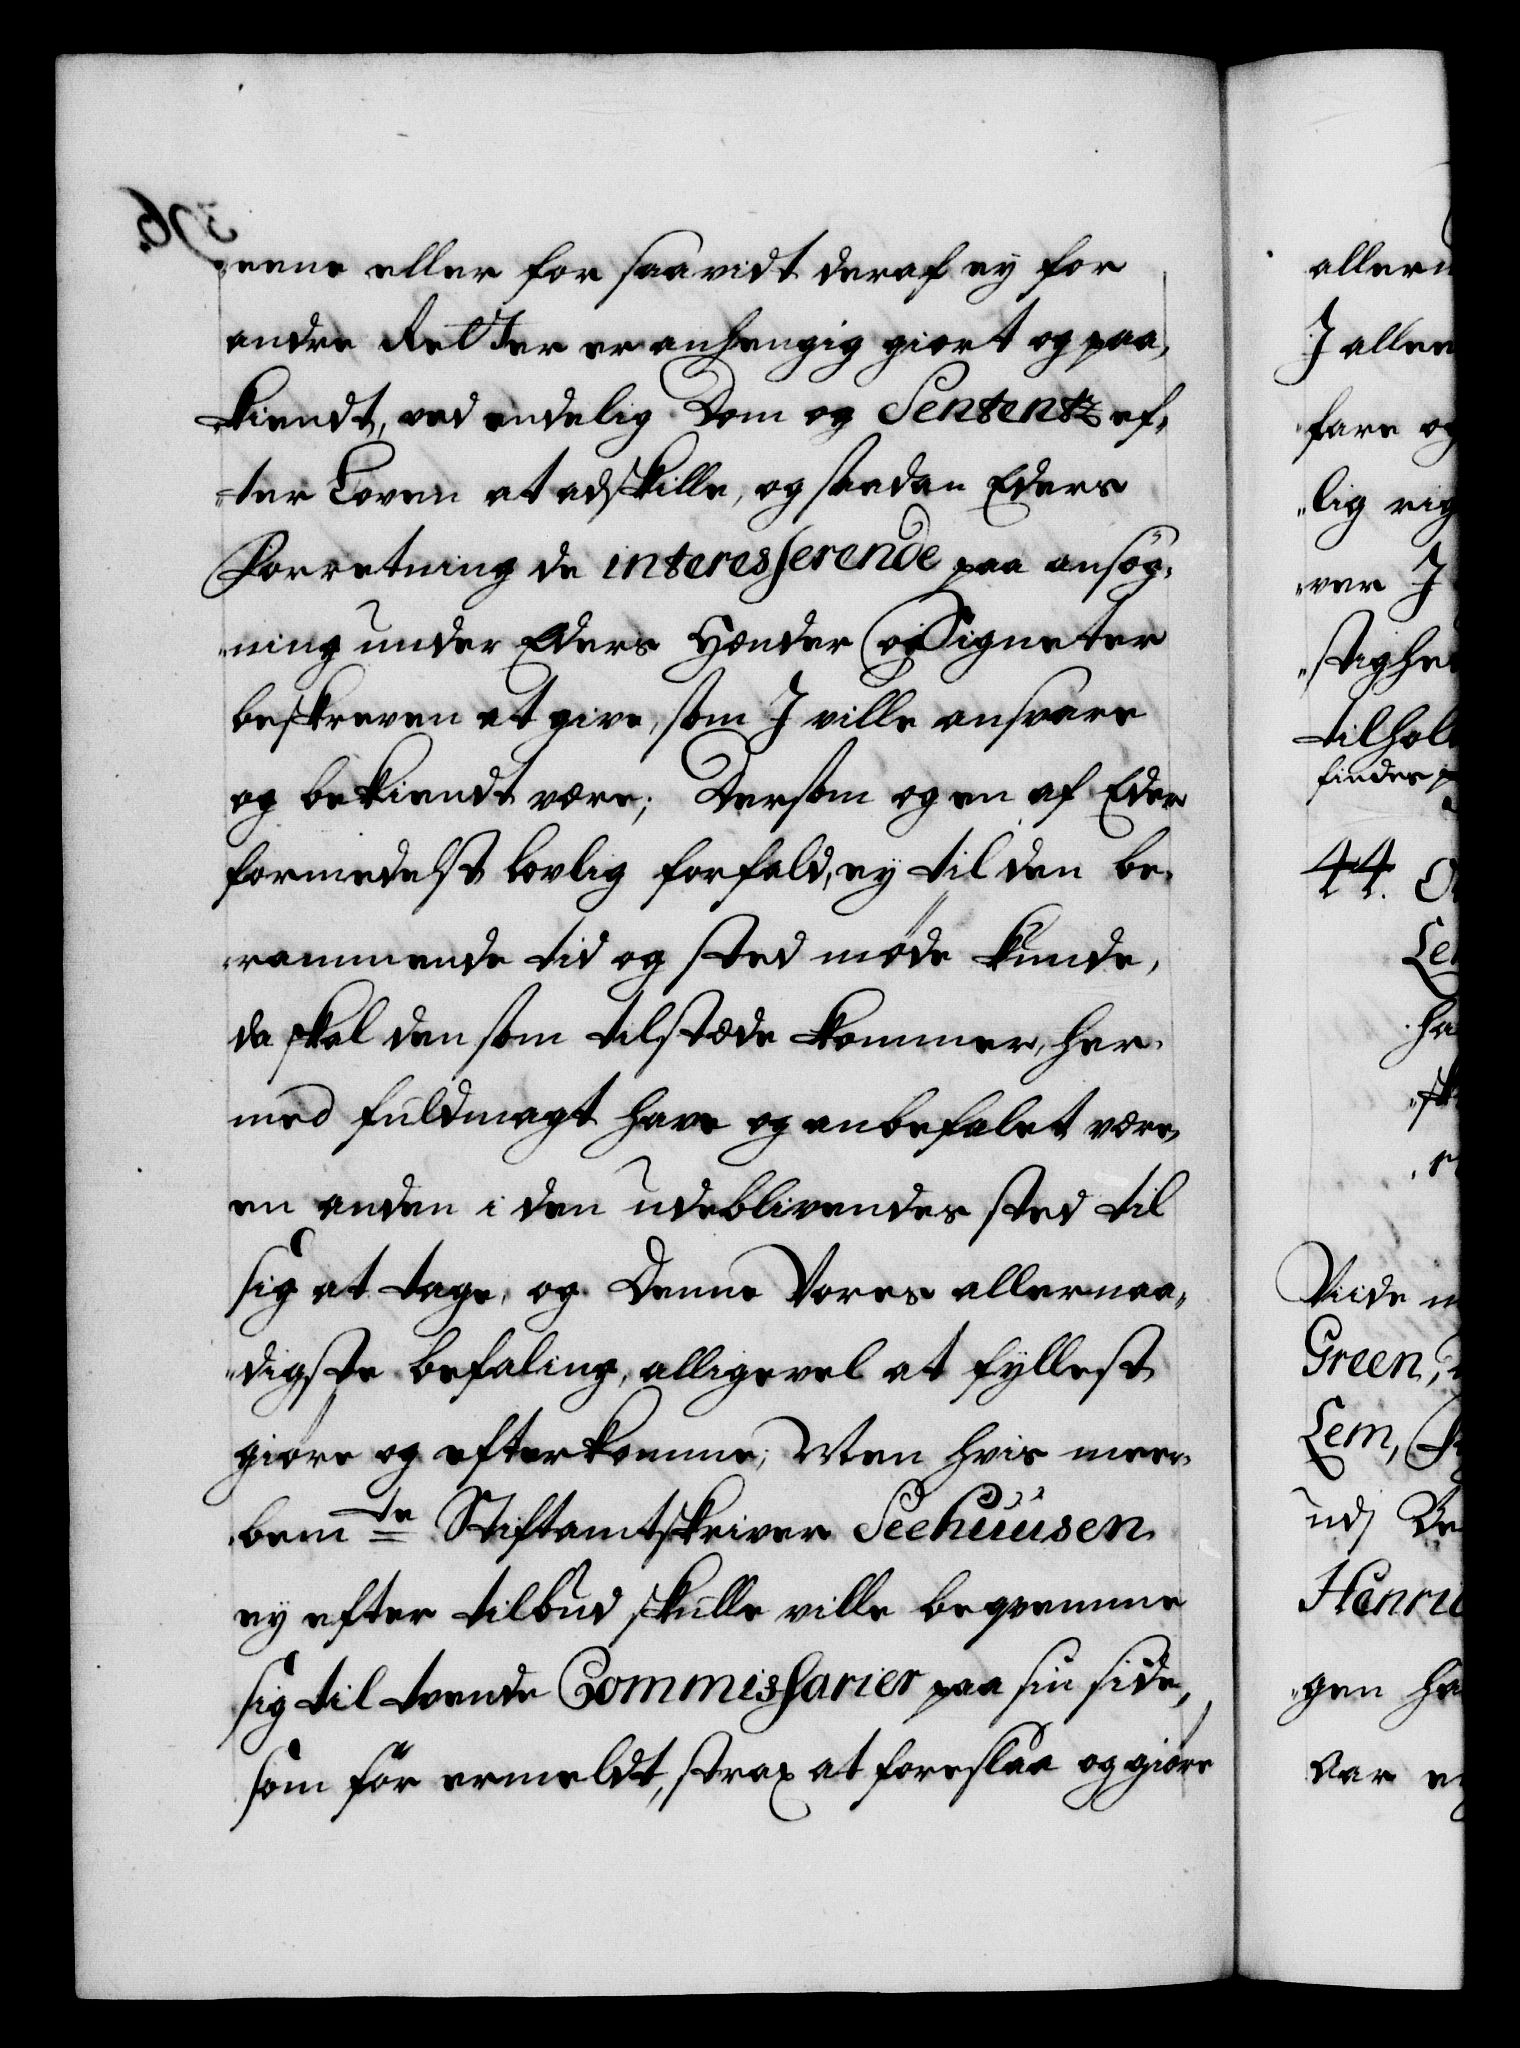 eene eller for saavidt deraf ey for
andre Retter er anhengig giort og paa,
kiendt, ved endelig Dom og Sententz ef,
ter Loven at adskille, og saadan Eders
Forretning de interesserende paa ansøg,
ning under Eders Hænder og Signeter
beskreven at give, som I ville ansvare
og bekiendt være; Dersom og en af Eder
formedelst lovlig forfald, ey til den be,
rammende tid og sted møde kunde,
da skal den som tilstæde kommer, her,
med fuldmagt have og anbefalet være,
en anden i den udeblivendes sted til
sig at tage, og Denne Vores allernaa,
digste befaling, alligevel at fyllest
giøre og efterkomme; Men hvis meer,
bemte Stiftamtskriver Seehuusen
ey efter tilbud skulle ville beqvemme
sig til tvende Commissarier paa sin side,
som før ermeldt, strax at foreslaa og giøre
allern
I aller
fare og
lig rig
ver I
stighe
tilhol
findes p
44.
Lem
ha
sk
Viide
Green,
Lem,
uds
Henri
gen ha
var